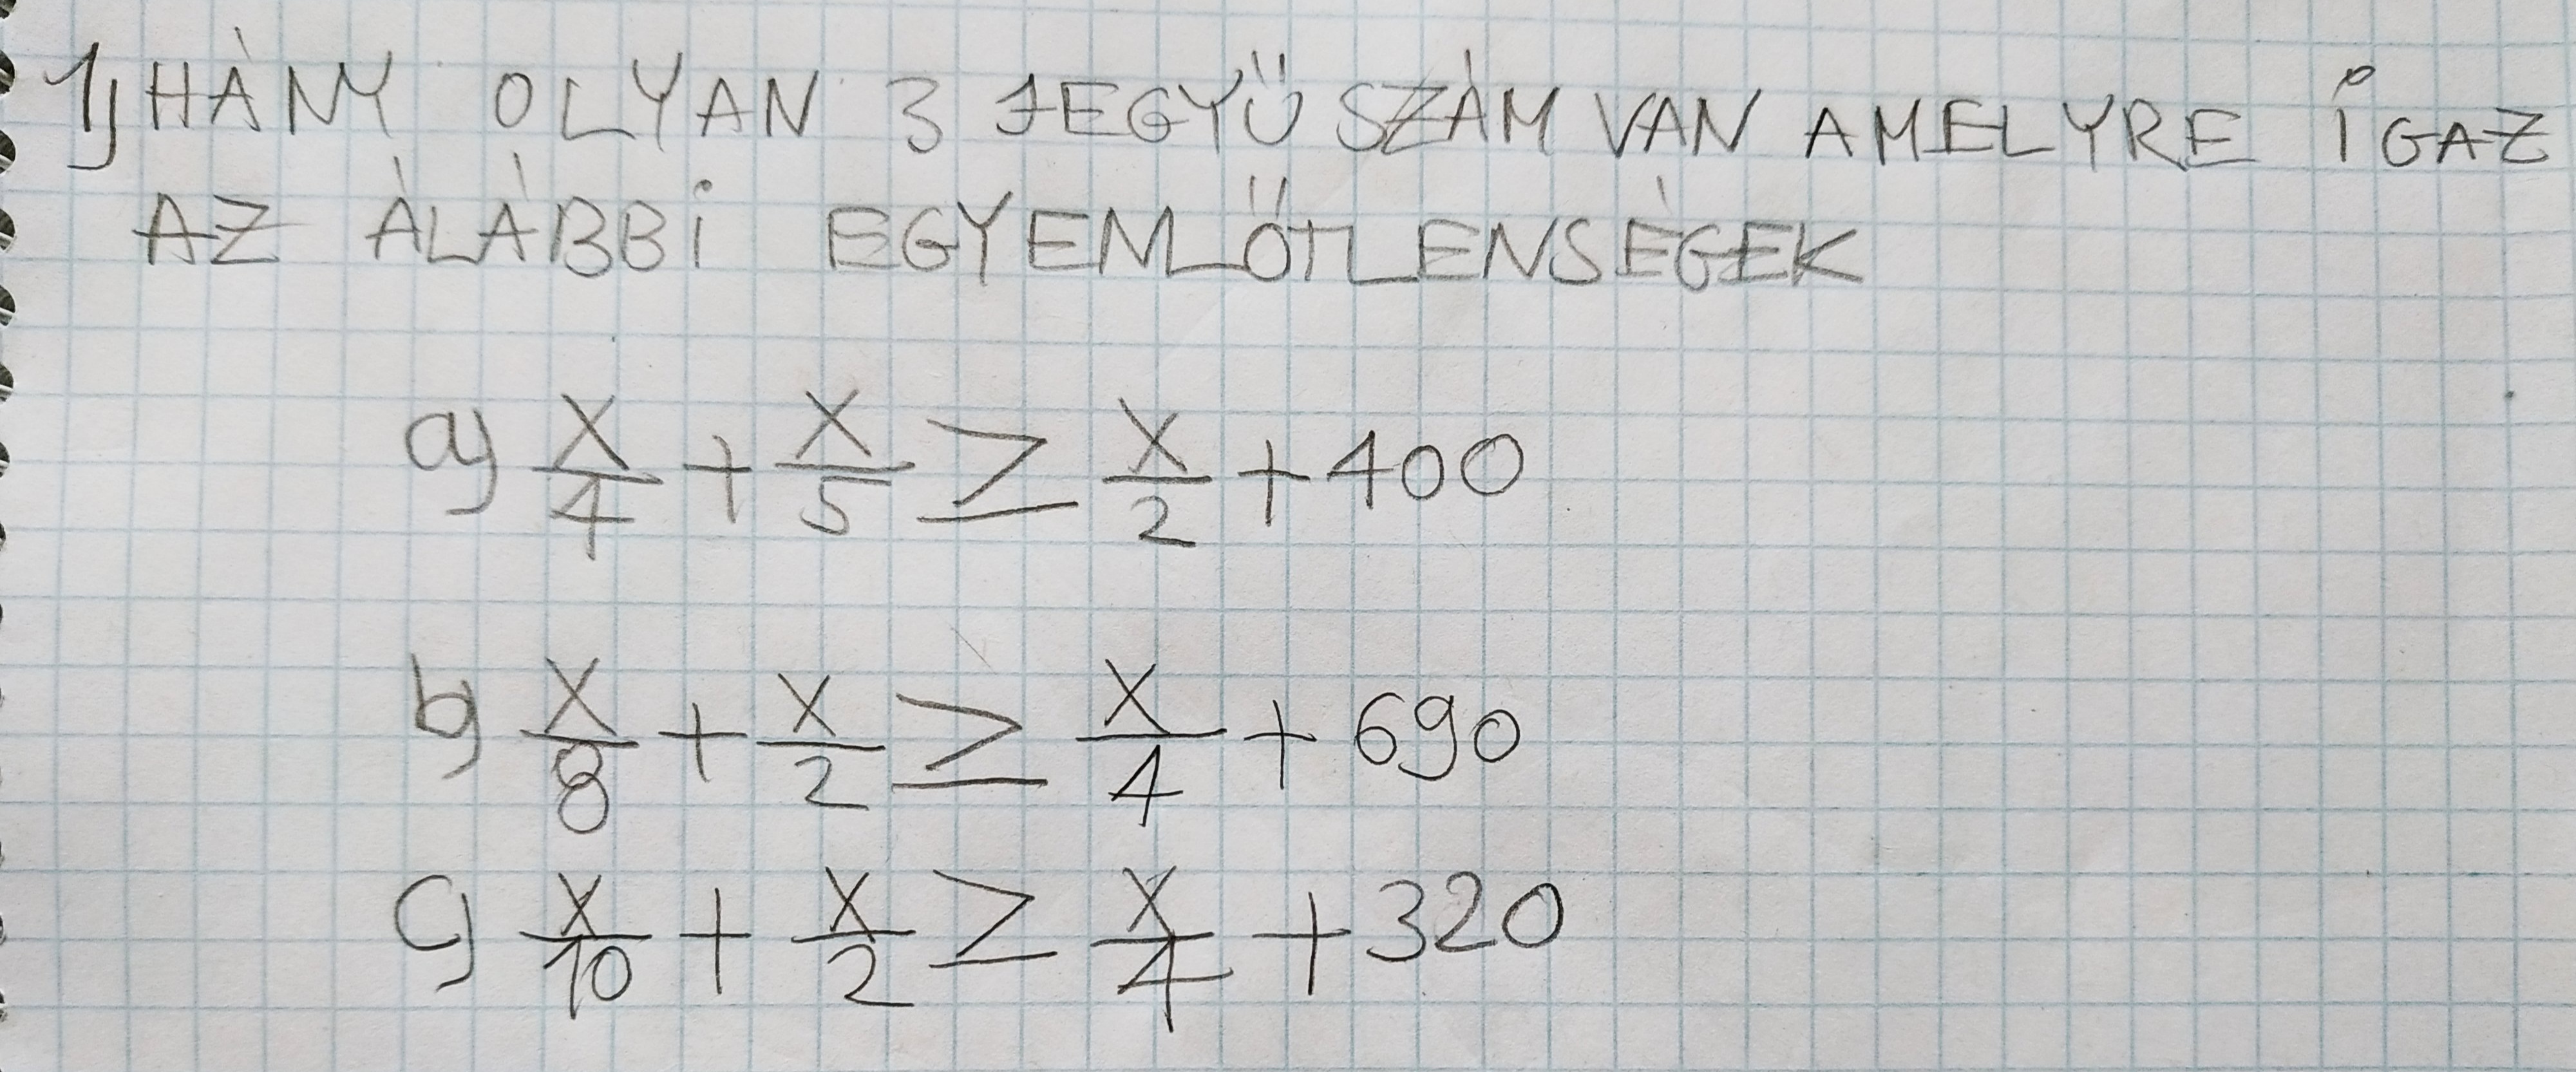 1) HÁNY OLYAN 3 JEGYŰ SZÁM VAN AMELYRE IGAZ
AZ ÁLÁBBI EGYENLŐTLENSÉGEK
a) x/4 + x/5 ≥ x/2 + 400
b) x/8 + x/2 ≥ x/4 + 690
c) x/10 + x/2 ≥ x/4 + 320